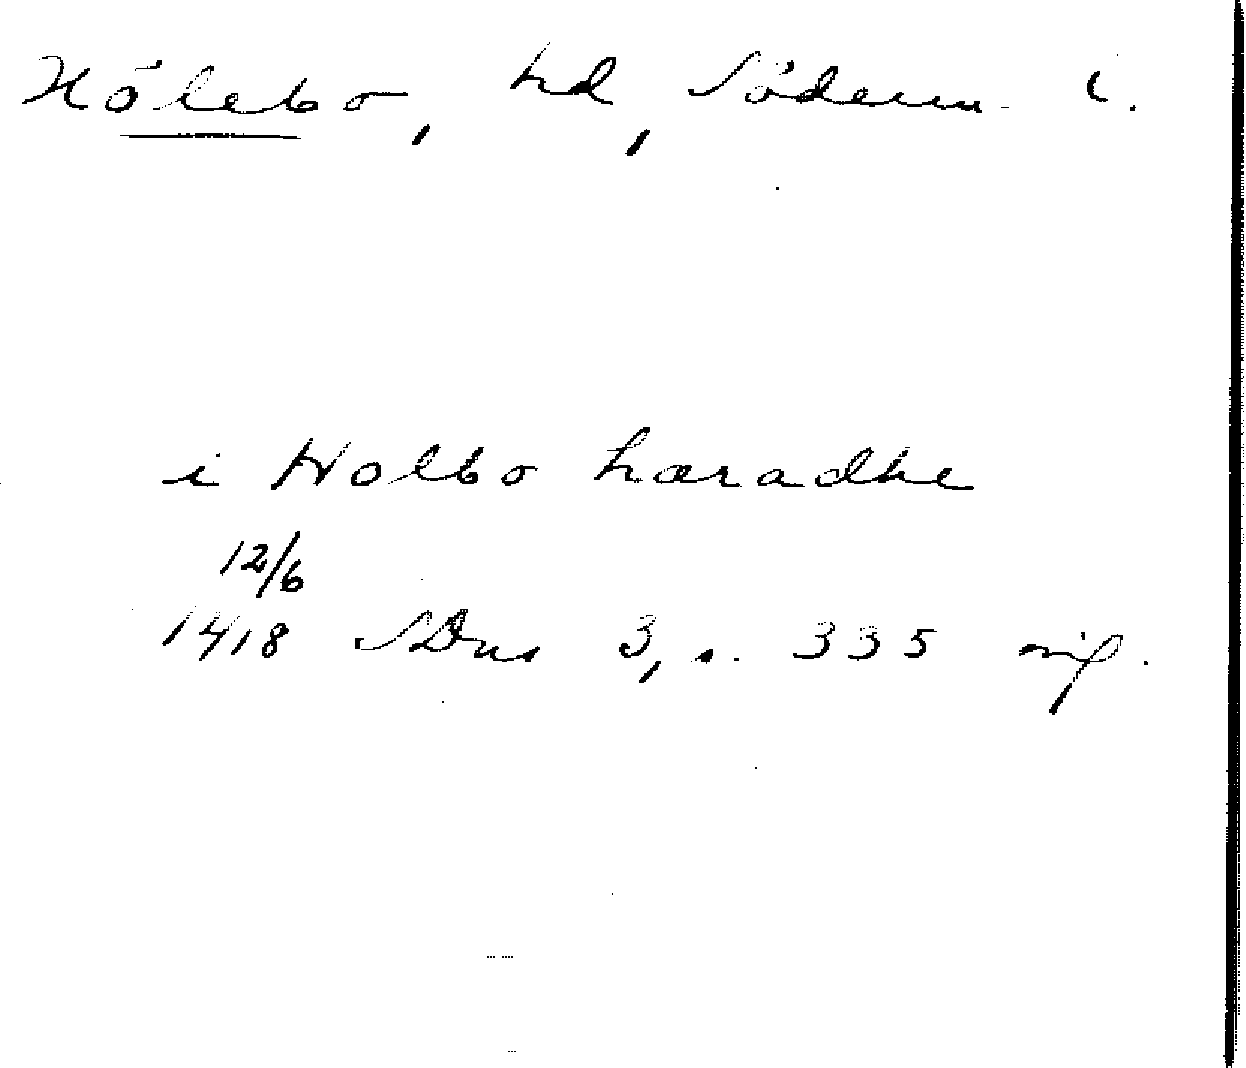 Hölebo, hd, Söderm. l.
i Holbo hæradhe
12/6
1418 SDns 3, s. 335 nif.